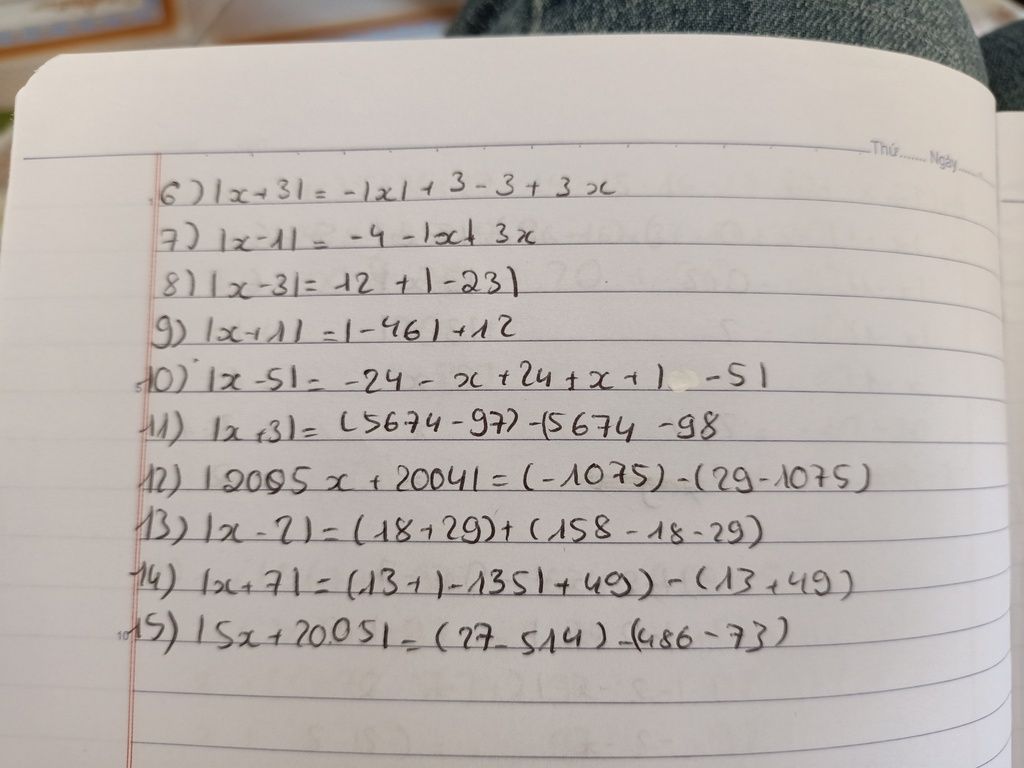 Thứ....... Ngày.......
6) |x+3| = -|x| + 3 - 3 + 3x
7) |x-1| = -4 - |x| + 3x
8) |x-3| = 12 + |-23|
9) |x+1| = |-46| + 12
10) |x-5| = -24 - x + 24 + x + | -5|
11) |x+3| = (5674 - 97) - (5674 - 98
12) |2005x + 2004| = (-1075) - (29 - 1075)
13) |x - 2| = (18 + 29) + (158 - 18 - 29)
14) |x + 7| = (13 + |-135| + 49) - (13 + 49)
10 15) |5x + 2005| = (27 - 514) - (486 - 73)